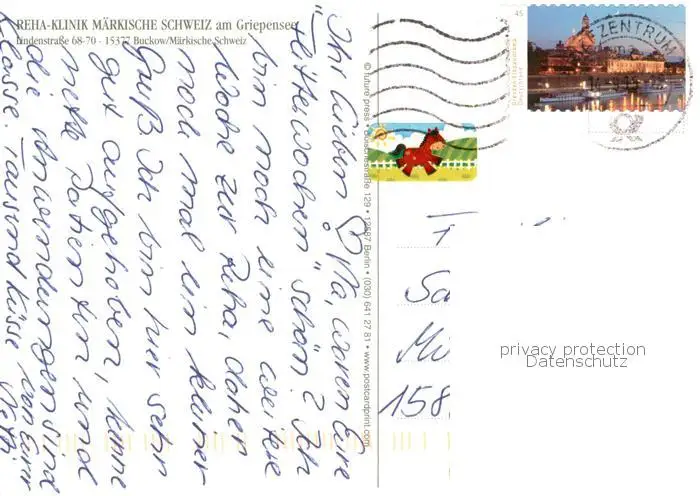 REHA-KLINIK MÄRKISCHE SCHWEIZ am Griepensee
Lindenstraße 68-70 · 15377 Buckow/Märkische Schweiz
Ihr Lieben! Na, waren Eure
"Flitterwochen" schön? Ich
bin noch eine weitere
Woche zur Reha, daher
noch mal ein kleiner
Gruß. Ich bin hier sehr
gut aufgehoben, keine
nette Patienten und
die Anwendungen sind
klasse. Tausend Küsse von Eurer
© future press · 129 · 12587 Berlin · (030) 641 27 81 · www.postcardprint.com
45
Dresden Elbpanorama
Deutschland
BRIEFZENTRUM
F
Sc
Mü
158
privacy protection
Datenschutz